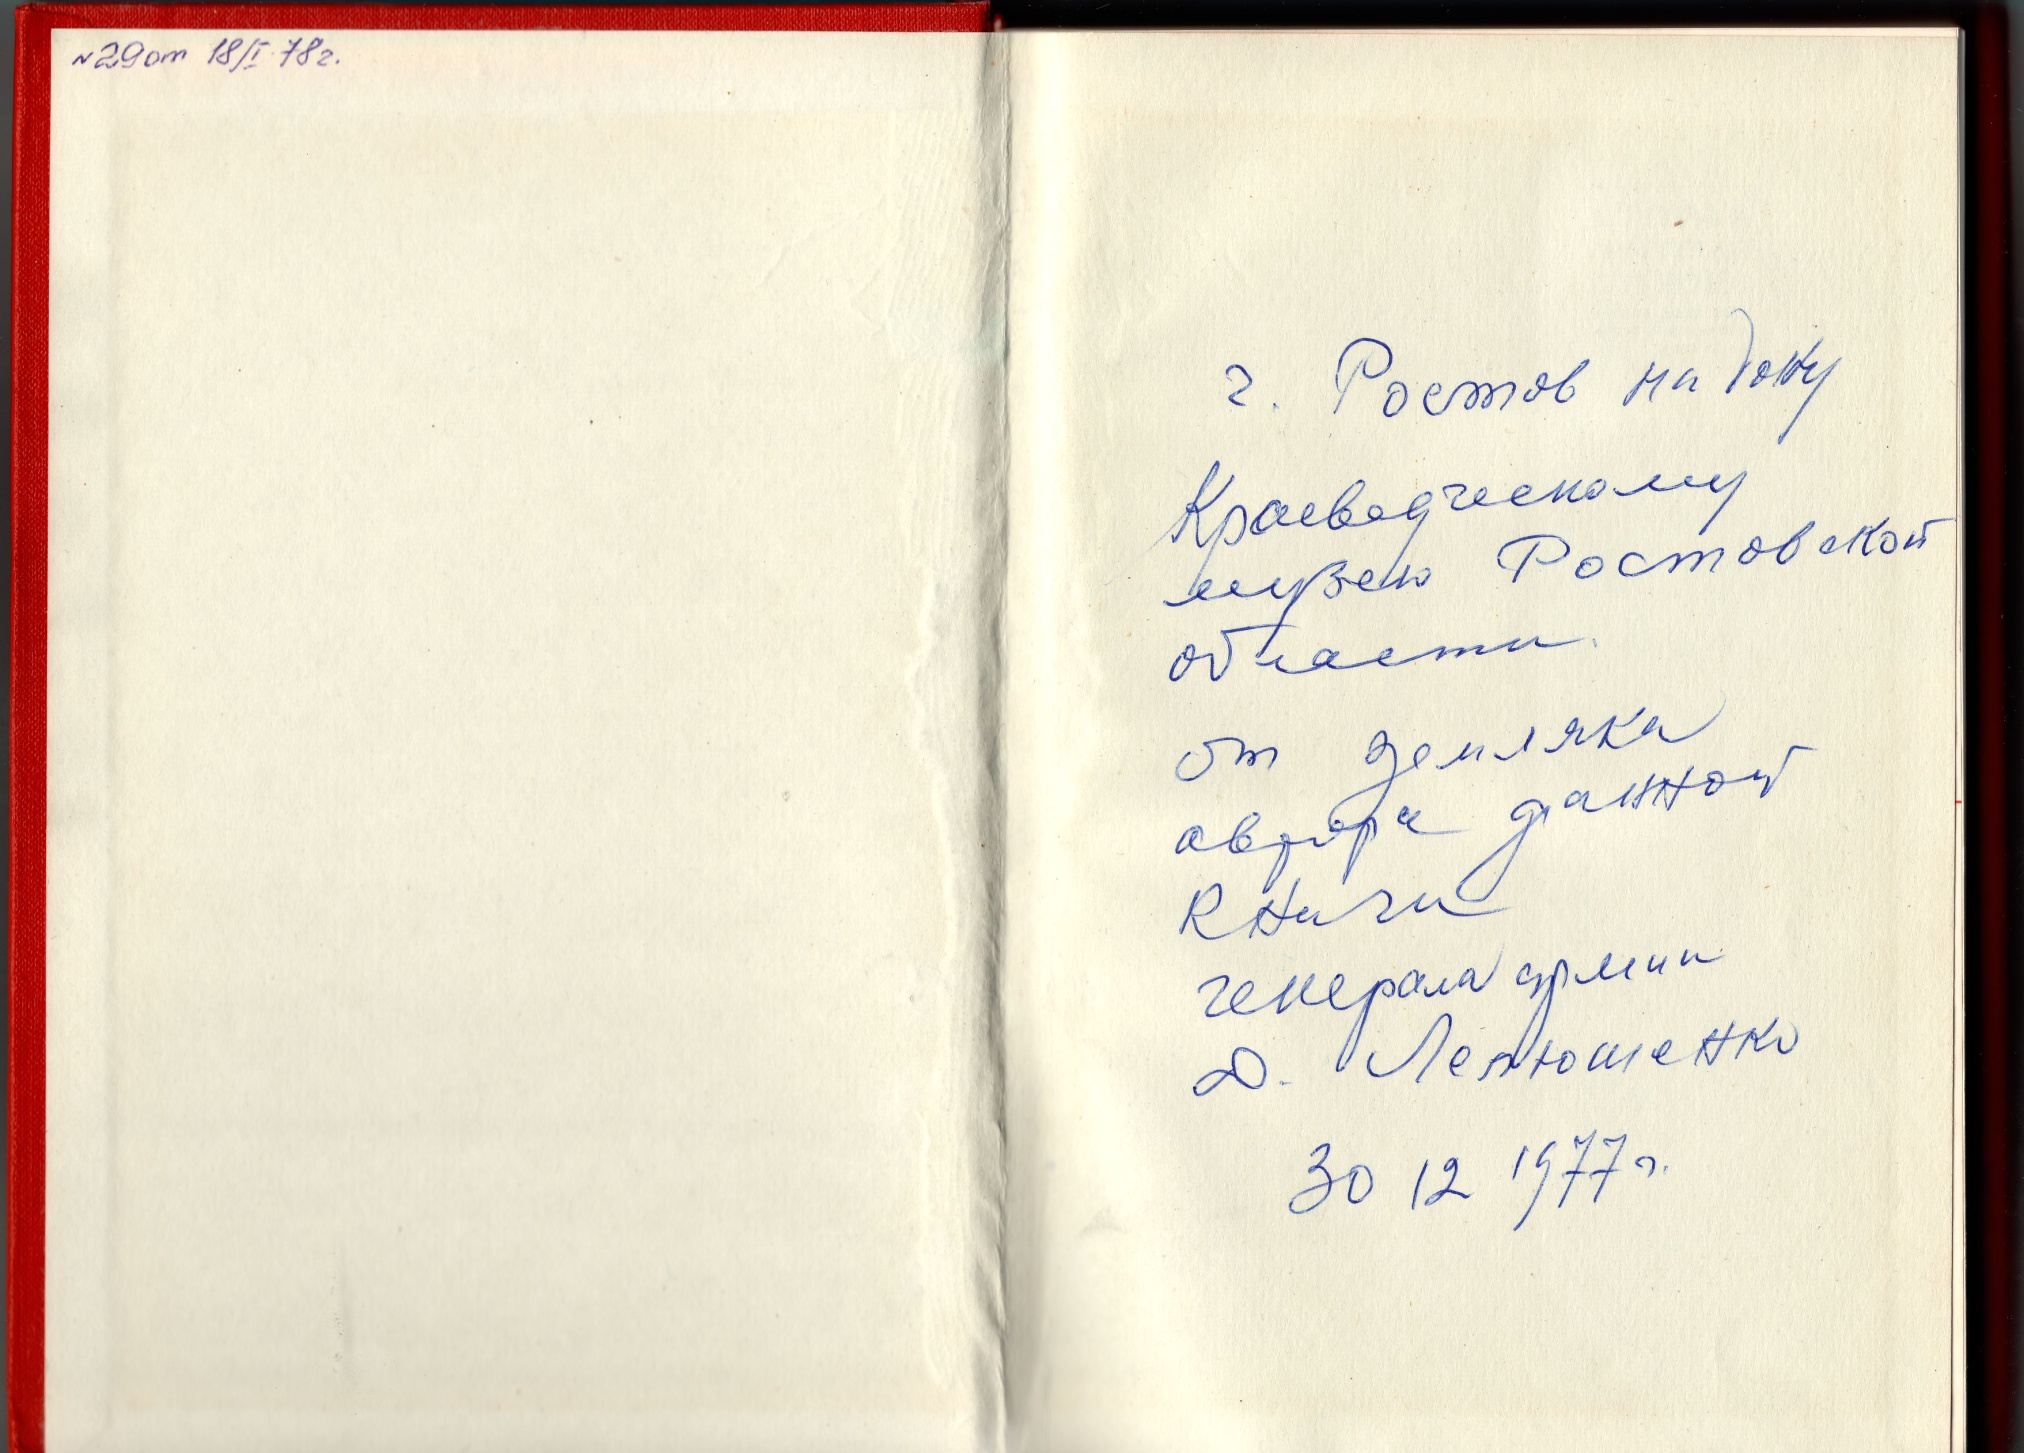 N29 от 18/I-78г.
г. Ростов на Дону
Краеведческому
музею Ростовской
области.
от земляка
автора данной
книги
генерала армии
Д. Лелюшенко
30 12 1977г.